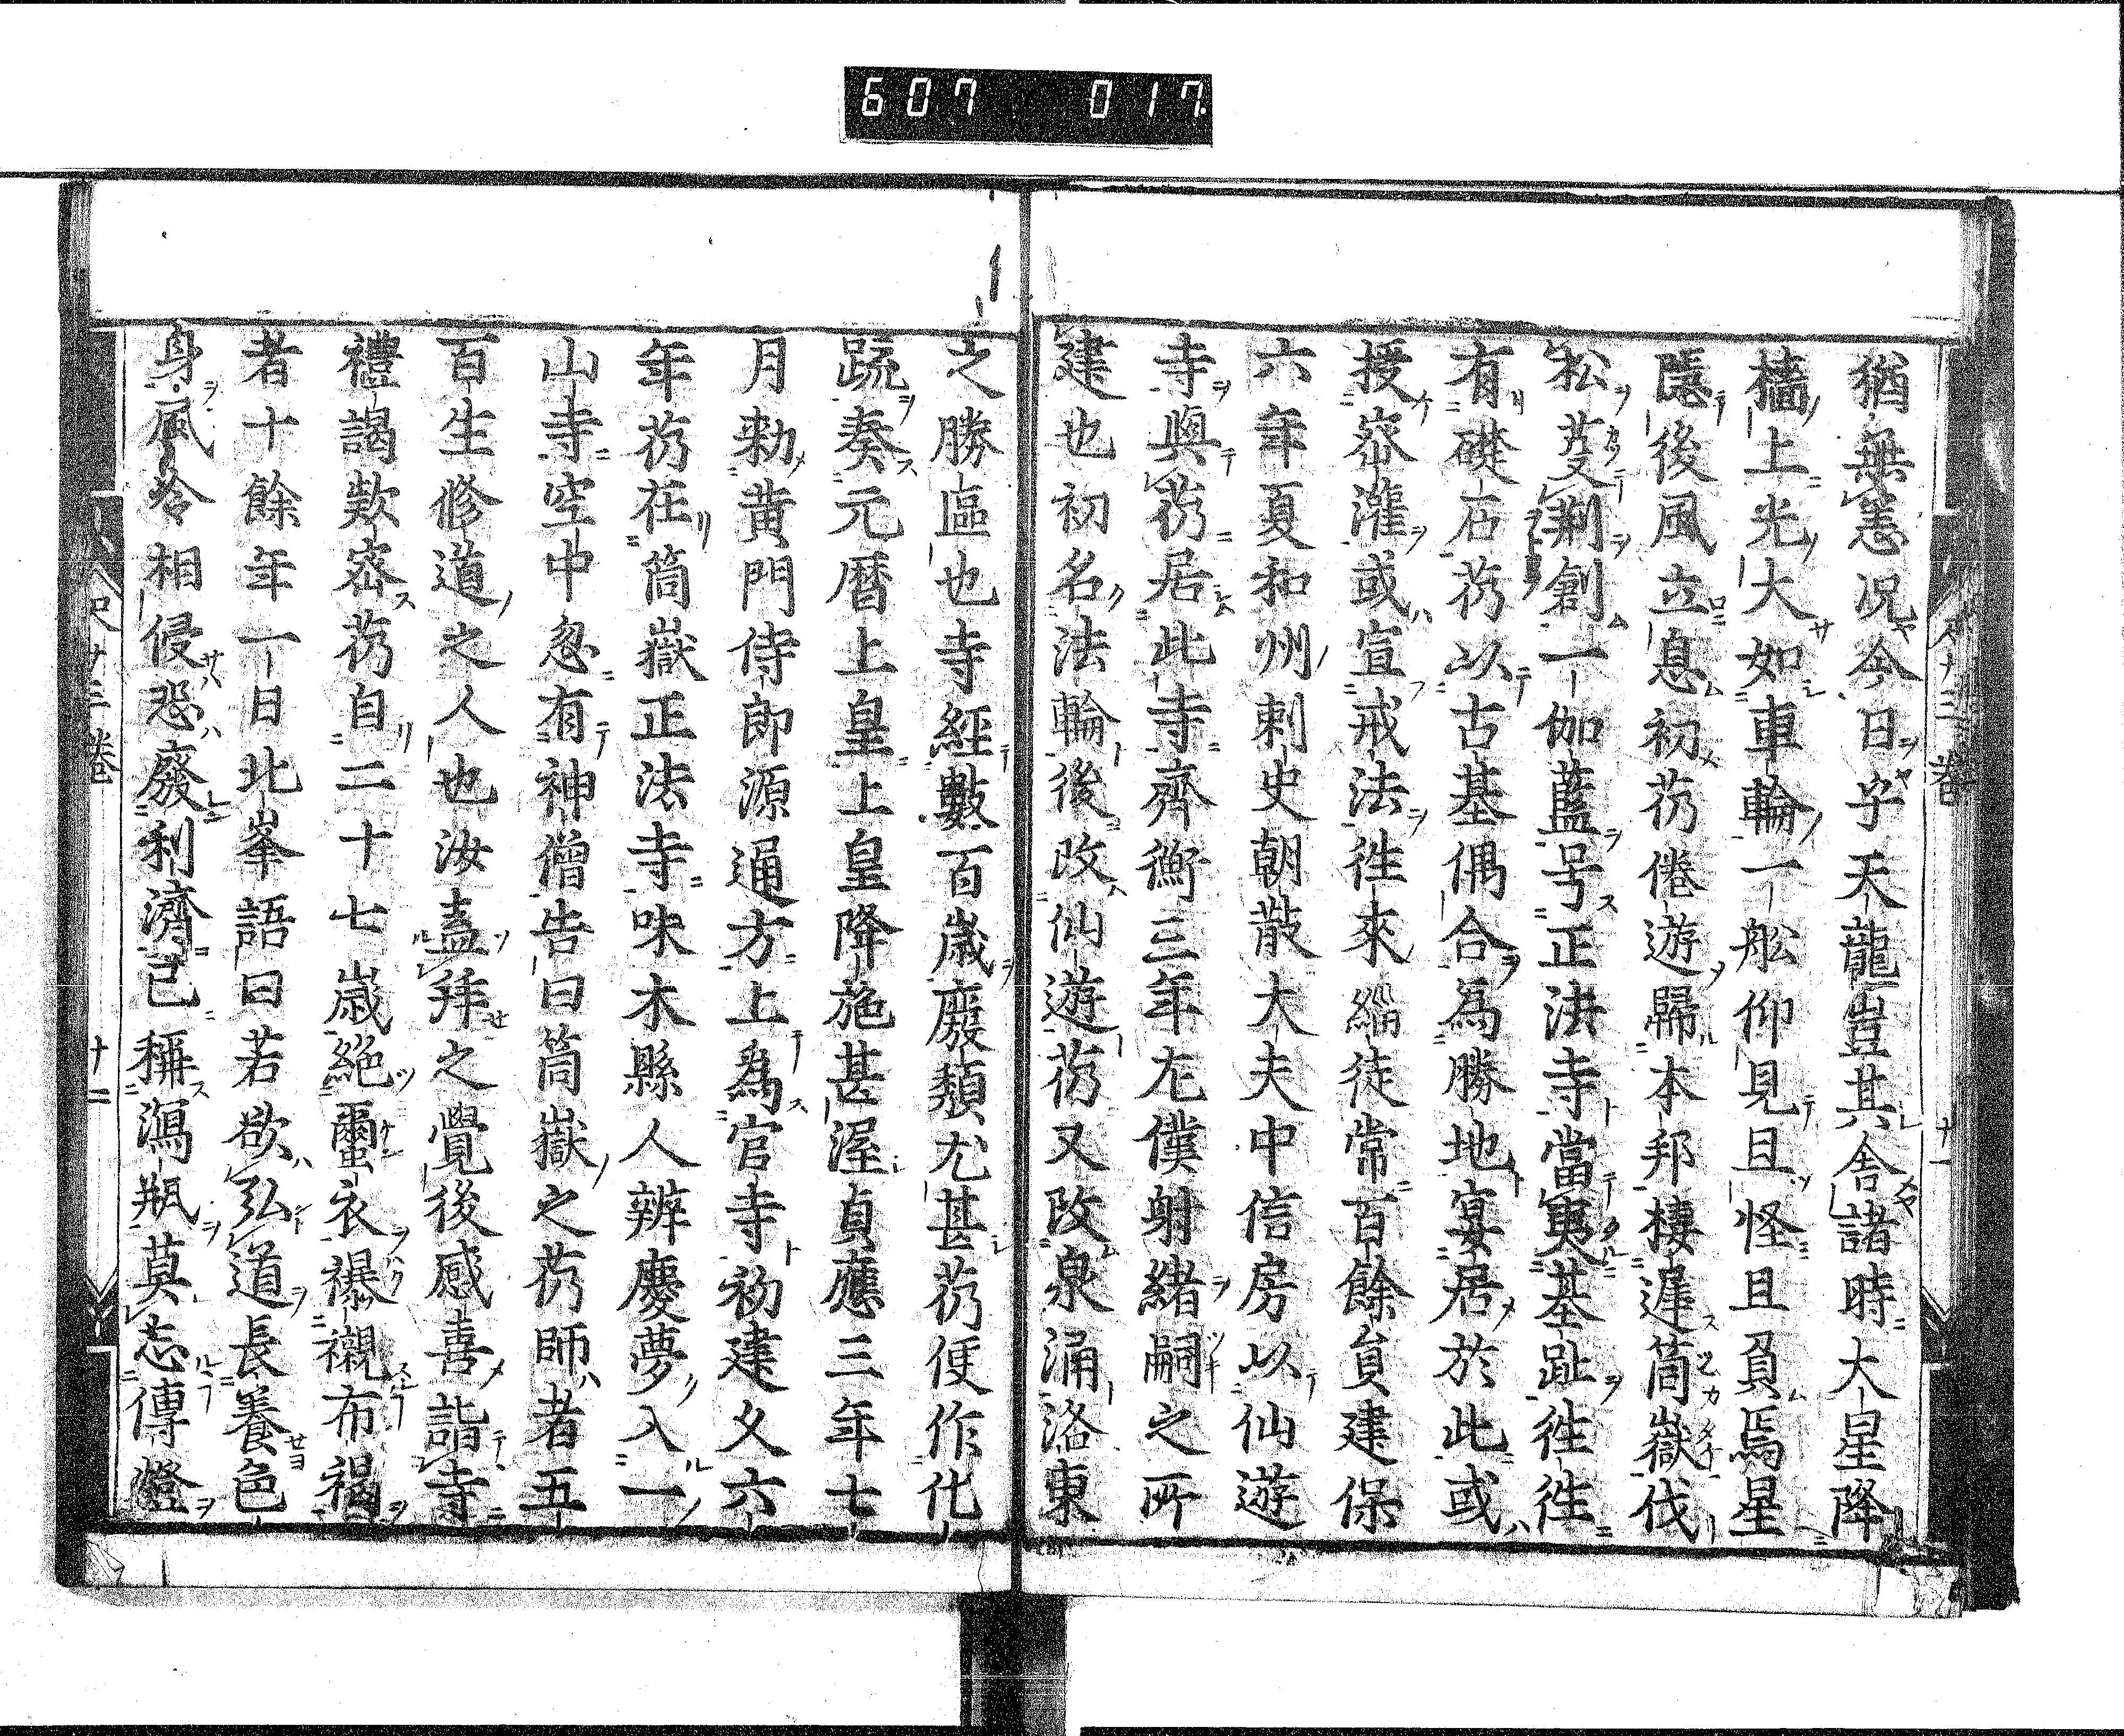 607 017
猶無恙況今日乎天龍豈其舎諸時大星降
檣上光大如車輪一舩仰見且怪且負焉星
隱後風立息初芿倦遊歸本邦棲遅筒嶽伐
松芟荆創一伽藍号正法寺當夷基趾徃徃
有礎石芿以古基偶合為勝地宴居於此或
授宻灌或宣戒法徃來緇徒常百餘貟建保
六年夏和州刺史朝散大夫中信房以仙遊
寺與芿居此寺齊衡三年尢僕射緒嗣之所
建也初名法輪後改仙遊芿又改泉涌洛東
之勝區也寺經數百歳廢頽尤甚芿便作化
疏奏元暦上皇上皇降施甚渥貞應三年七
月勅黄門侍郎源通方上為官寺初建久六
年芿在筒嶽正法寺味木縣人辨慶夢入一
山寺空中忽有神僧告曰筒嶽之芿師者五
百生修道之人也汝盍拜之覺後感喜詣寺
禮謁欵宻芿自二十七歳絶蠒衣襮襯布褐
者十餘年一日北峯語曰若欲弘道長養色
身風冷相侵恐廢利濟已稱瀉瓶莫忘傳燈
十三卷
十一
十三卷
十二